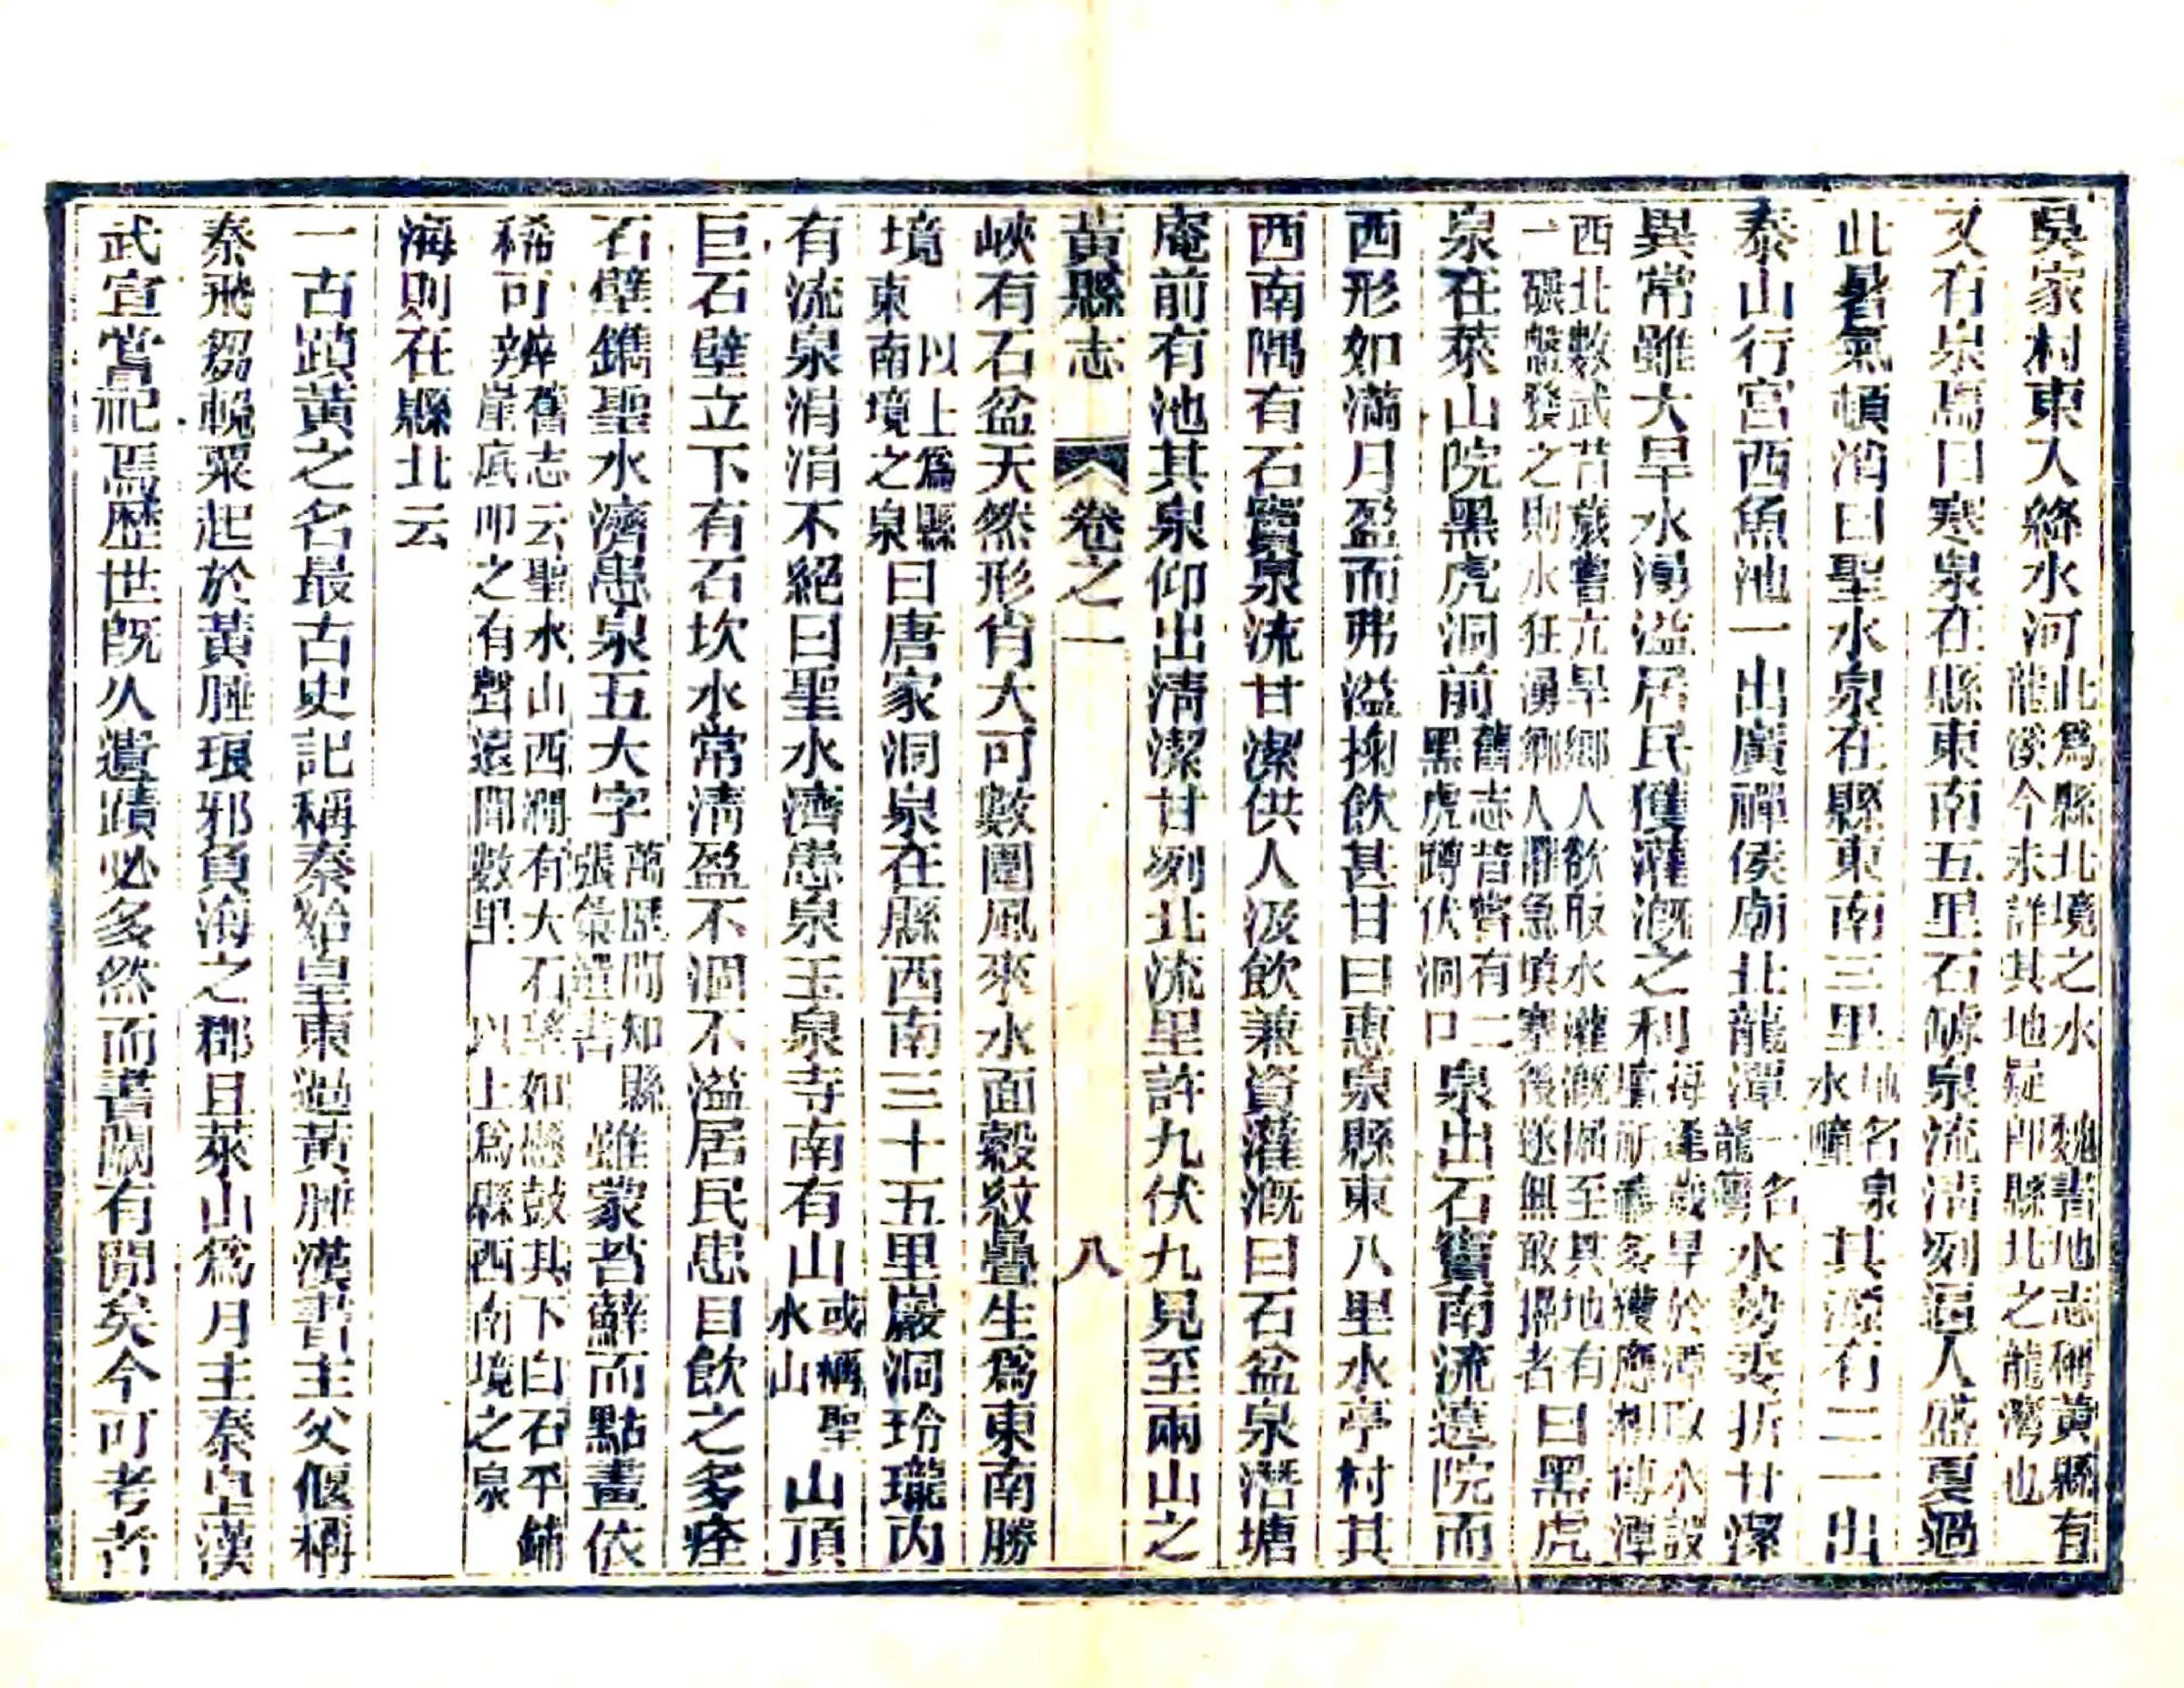 吳家村東入絳水河此爲縣北境之水 魏書地志稱黃縣有龍溪今未詳其地疑卽縣北之龍灣也
又有泉焉曰寒泉在縣東南五里石罅泉流清冽逼人盛夏過
此暑氣頓消曰聖水泉在縣東南三里地名泉水疃其源有二一出
泰山行宮西魚池一出廣禪侯廟北龍潭一名龍灣水勢委折甘潔
異常雖大旱水湧溢居民獲灌漑之利每逢歲旱於潭取水設壇祈禱多獲應相傳潭
西北數武昔歲嘗亢旱鄉人欲取水灌漑掘至其地有一碾盤發之則水狂湧鄉人懼急塡塞後遂無敢掘者曰黑虎
泉在萊山院黑虎洞前舊志昔嘗有二黑虎蹲伏洞口泉出石竇南流遶院而
西形如滿月盈而弗溢掬飲甚甘曰惠泉縣東八里水亭村其
西南隅有石竇泉流甘潔供人汲飲兼資灌漑曰石盆泉潛塘
庵前有池其泉仰出清潔甘冽北流里許九伏九見至兩山之
黃縣志 卷之一 八
峽有石盆天然形肖大可數圍風來水面縠紋疊生爲東南勝
境 以上爲縣東南境之泉曰唐家洞泉在縣西南三十五里巖洞玲瓏內
有流泉涓涓不絕曰聖水濟患泉玉泉寺南有山或稱聖水山山頂
巨石壁立下有石坎水常清盈不涸不溢居民患目飲之多痊
石壁鐫聖水濟患泉五大字萬歷間知縣張彙選書雖蒙苔蘚而點畫依
稀可辨舊志云聖水山西澗有大石瑋如懸鼓其下白石平鋪崖底叩之有聲遠聞數里 以上爲縣西南境之泉
海則在縣北云
一古蹟黃之名最古史記稱秦始皇東過黃腄漢書主父偃稱
秦飛芻輓粟起於黃腄琅邪負海之郡且萊山爲月主秦皇漢
武宣嘗祀焉歷世旣久遺蹟必多然而書闕有閒矣今可考者